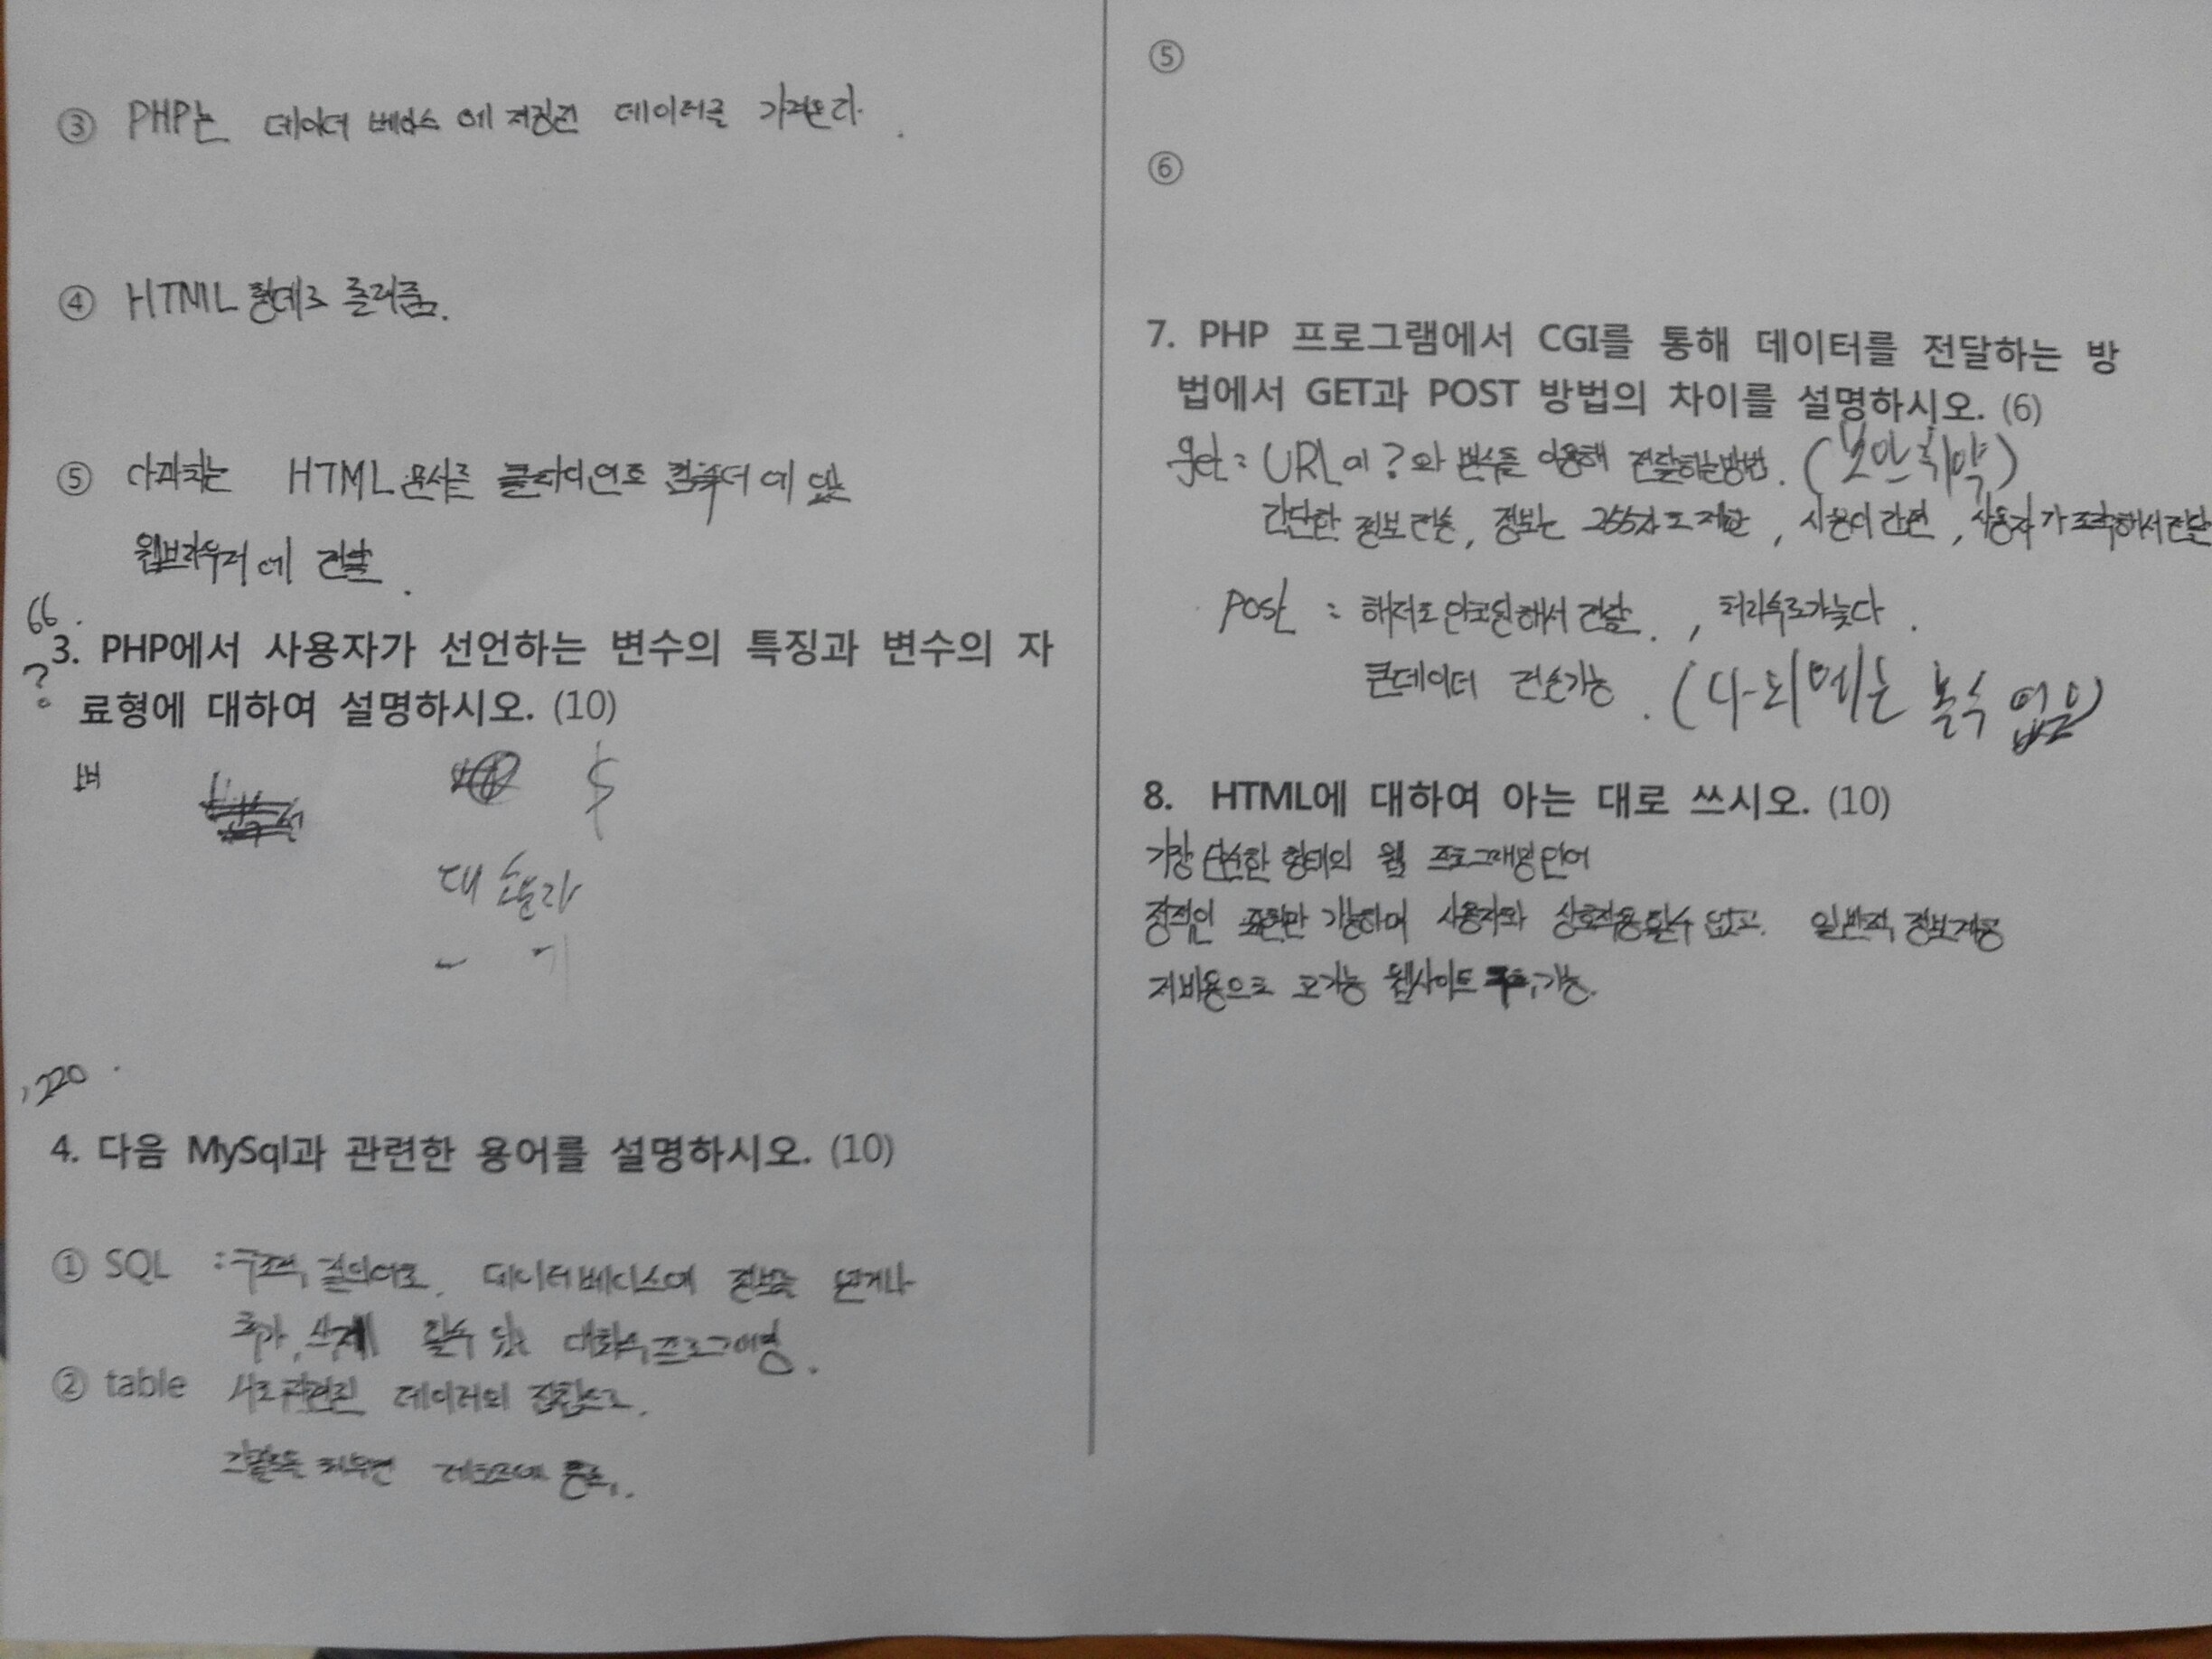 ③ PHP는 데이터 베이스에 저장된 데이터를 가져온다.
④ HTML 형태로 돌려줌.
⑤ 아파치는 HTML 문서를 클라이언트 컴퓨터에 있는
웹브라우저에 전달.
66.
?
3. PHP에서 사용자가 선언하는 변수의 특징과 변수의 자
료형에 대하여 설명하시오. (10)
대 소문자
,220
4. 다음 MySql과 관련한 용어를 설명하시오. (10)
① SQL : 구조적 질의어로, 데이터베이스에 정보를
추가, 삭제 할수 있는 대화식 프로그래밍.
② table 서로 관련된 데이터의 집합으로,
⑤
⑥
7. PHP 프로그램에서 CGI를 통해 데이터를 전달하는 방
법에서 GET과 POST 방법의 차이를 설명하시오. (6)
get : URL에 ?와 변수들 이용해 전달하는방법. (보안취약)
간단한 정보 전송, 정보는 255자로 제한, 사용이 간편, 사용자가 조작해서 전달
post : 전달. , 처리속도가늦다.
큰데이터 전송가능. (나 뇌에는 녹식 없음)
8. HTML에 대하여 아는 대로 쓰시오. (10)
가장 단순한 형태의 웹 프로그래밍언어
정적인 표현만 가능하며 사용자와 상호작용할수 없고. 일반적 정보제공
저비용으로 고기능 웹사이트 가능.